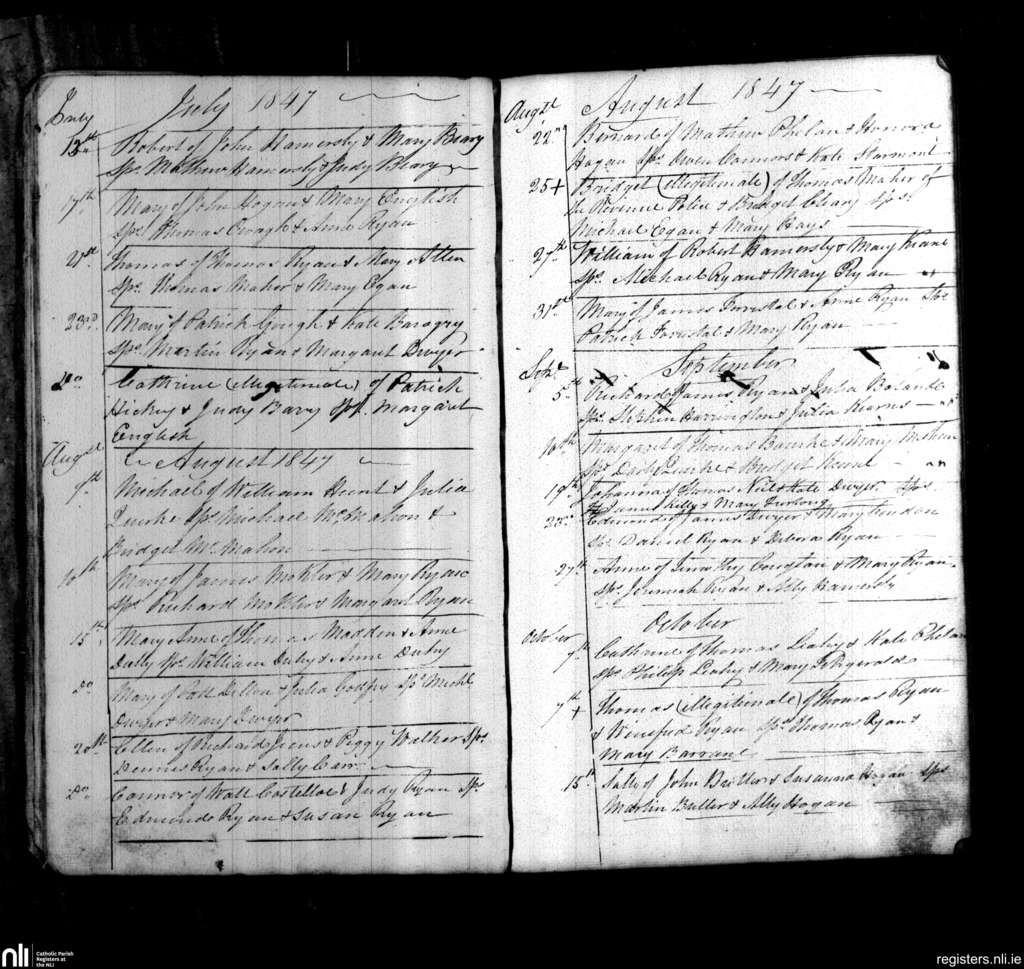 July 1847
July
13th Robert of John Hamersly & Mary Beary
Sps. Mathew Hamersly & Judy Bleary
17th Mary of John Hogan & Mary English
Sps. Thomas Creagh & Anne Ryan
21st Thomas of Thomas Ryan & Mary Allen
Sps. Thomas Maher & Mary Egan
23rd Mary of Patrick Gough & Kate
Sps. Martin Ryan & Margaret Dwyer
Do Cathrine (illegitimate) of Patrick
Hickey & Judy Barry Sps. Margaret
English
Augst
August 1847
9th Michael of William Hunt & Julia
Quirke Sps Michael McMahon &
Bridget McMahon
10th Mary of James Mockler & Mary Ryan
Sps. Richard Mockler & Margaret Ryan
15th Mary Anne of Thomas Maddon & Anne
Duhy Sps. William Duhy & Anne Duhy
Do Mary of Patt & Julia Godfry Sps Michl
Dwyer & Mary Dwyer
20th Ellen of Richard & Peggy Walker Sps.
Dennis Ryan & Sally Carr
Do Connor of Watt Costelloe & Judy Ryan Sps
Edmond Ryan & Susan Ryan
August 1847
Augst
22nd Bernard of Mathew Phelan & Honora
Hogan Sps. Owen Connors & Kate
25 + Bridget (illegitimate) of Thomas Maher of
the Revenue Police & Bridget Cleary Sps.
Michael Egan & Mary Hays
27th William of Robert Hamersly & Mary Keane
Sps. Michael Ryan & Mary Ryan
31st Mary of James Forestal & Anne Ryan Sps
Patrick Forestal & Mary Ryan
September
Sept
5th Richard of James Ryan & Julia Boland
Sps Stephen Harrington & Julia Kearns
10th Margaret of Thomas Bourke & Mary
Sps & Bridget
19th Johanna of Thomas Neil & Kate Dwyer Sps
Samuel Kelly & Mary Furlong
23rd Edmond of James Dwyer & Mary
Sps Daniel Ryan & Debora Ryan
27th Anne of Timothy & Mary Ryan
Sps. Jeremiah Ryan & Ally
October
October
7th Cathrine of Thomas Leahy & Kate Phelan
Sps Philip Leahy & Mary Fitzgerald
7th + Thomas (illegitimate) of Thomas Ryan
& Winefred Ryan Sps Thomas Ryan &
Mary Barrane
15th Sally of John Butler & Susanna Hogan Sps
Martin Butler & Ally Hogan
nli
Catholic Parish
Registers at
the NLI
registers.nli.ie